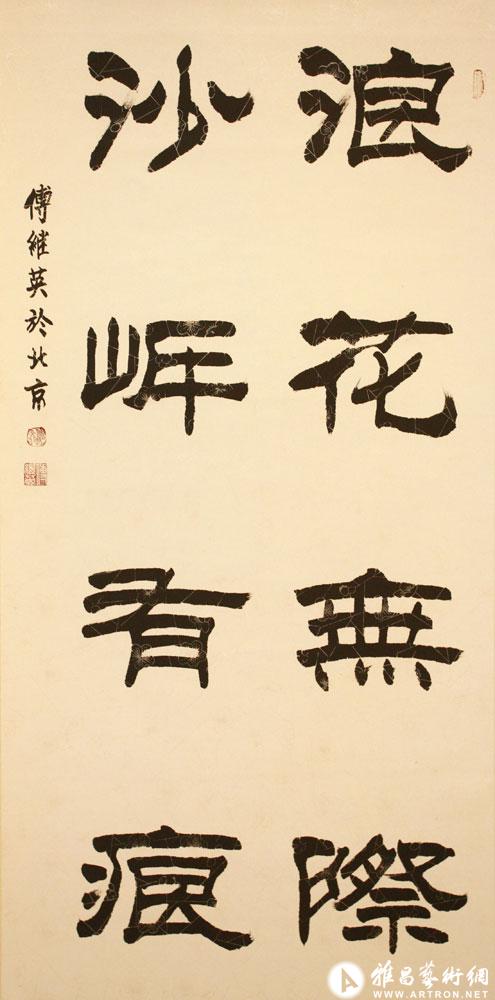 浪花無際
沙岸有痕
傅繼英於北京
雅昌藝術網
WWW.ARTRON.NET